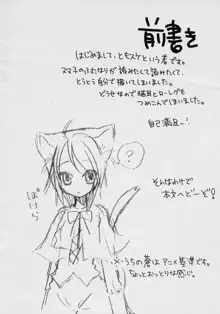 前書き
はじめまして、ともスケという者です。
ヌマ子のふむなりが読みたくて読みたくて、
とうとう自分で描いてしまいました。
どうせなので猫耳とローレグも
つめこんでしまいました。
自己満足…!
?
ぽけら
そんなわけで
本文へどーぞ!
※うちの蒼はアニメ基準です。
ちょっとおっとりな感じ。